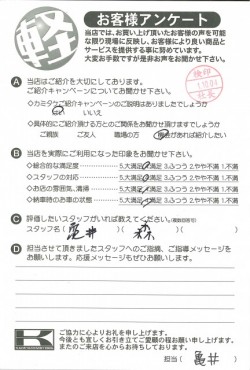 軽
お客様アンケート
当店では、お買い上げ頂いたお客様の声を可能
な限り現場に反映し、お客様により良い商品と
サービスを提供する事に努めています。
大変お手数ですが是非お声をお聞かせ下さい。
検印
社長
A 当店はご紹介を大切にしております。
ご紹介キャンペーンについてお聞かせ下さい。
◇カミタケご紹介キャンペーンのご説明はありましたでしょうか
はい いいえ
◇具体的にご紹介頂ける方とのご関係をお聞かせ頂けますでしょうか
ご親族 ご友人 職場の方 機会があれば紹介したい
B 当店を実際にご利用になった印象をお聞かせ下さい。
◇総合的な満足度 5.大満足 4.満足 3.ふつう 2.やや不満 1.不満
◇スタッフの対応 5.大満足 4.満足 3.ふつう 2.やや不満 1.不満
◇お店の雰囲気、清掃 5.大満足 4.満足 3.ふつう 2.やや不満 1.不満
◇納車時のお車の状態 5.大満足 4.満足 3.ふつう 2.やや不満 1.不満
C 評価したいスタッフがいれば教えてください。(複数回答可)
スタッフ名( 亀井 森 )
D 担当させて頂きましたスタッフへのご指摘、ご指導メッセージを
お願いします。応援メッセージもぜひお願いします。
K
ご協力に心よりお礼を申し上げます。
今後とも宜しくお引き立てご愛顧の程お願い申し上げます。
またのご来店を心からお待ちしております。
担当( 亀井 )